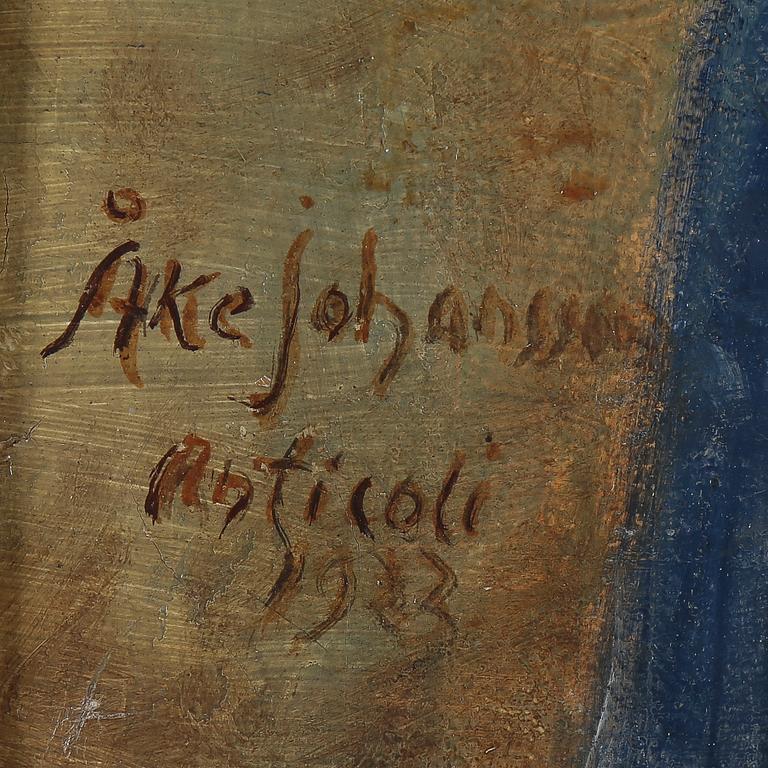 Åke Johansson
Anticoli
1923